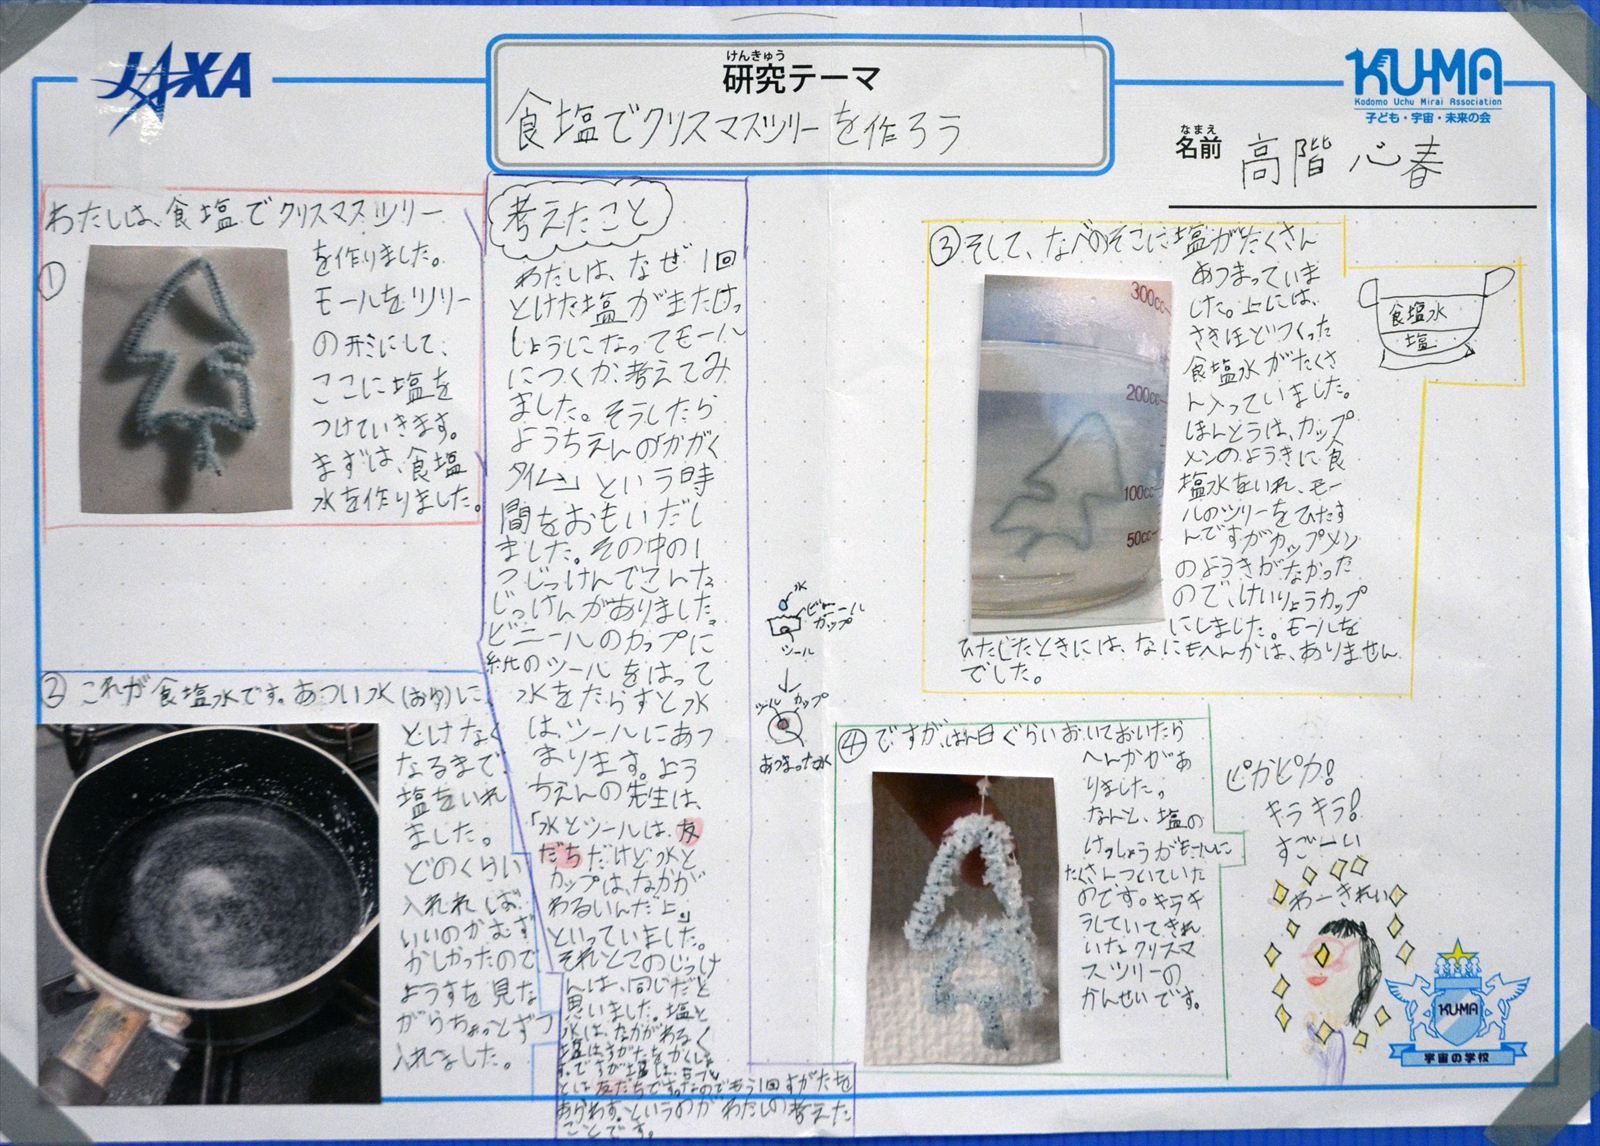 JAXA
けんきゅう
研究テーマ
食塩でクリスマスツリーを作ろう
KUMA
Kodomo Uchu Mirai Association
子ども・宇宙・未来の会
なまえ
名前
高階 心春
わたしは、食塩でクリスマスツリー
①
を作りました。
モールをツリー
の形にして、
ここに塩を
つけていきます。
まずは、食塩
水を作りました。
② これが食塩水です。あつい水(おゆ)に
とけなく
なるまで、
塩をいれ
ました。
どのくらい
入れれば
いいのかむず
かしかったので
ようすを見な
がらちょっとずつ
入れました。
考えたこと
わたしは、なぜ1回
とけた塩がまたけっ
しょうになってモール
につくか、考えてみ
ました。そうしたら
ようちえんの「かがく
タイム」という時
間をおもいだし
ました。その中の1
つじっけんでこんな
じっけんがありました。
ビニールのカップに
紙のシールをはって
水をたらすと水
は、シールにあつ
まります。よう
ちえんの先生は、
「水とシールは、友
だちだけど水と
カップは、なかが
わるいんだよ。」
といっていました。
それとこのじっけ
んは、同じだと
思いました。塩と
水は、なかがわるく
塩はすがたをかくしま
す。ですが塩は、モール
とは友だちです。なのでもう1回すがたを
あらわす。というのがわたしの考えた
ことです。
水
ビニール
カップ
シール
シール カップ
あつまった水
③ そして、なべのそこに塩がたくさん
あつまっていま
した。上には、
さきほどつくった
食塩水がたくさ
ん入っていました。
ほんとうは、カップ
メンのようきに食
塩水をいれ、モー
ルのツリーをひたす
んですがカップメン
のようきがなかった
ので、けいりょうカップ
にしました。モールを
ひたしたときには、なにもへんかは、ありません
でした。
300cc
200cc
100cc
50cc
食塩水
塩
④ ですが、はん日ぐらいおいておいたら
へんかがあ
りました。
なんと、塩の
けっしょうがモールに
たくさんついていた
のです。キラキ
ラしていてきれ
いなクリスマ
スツリーの
かんせいです。
ピカピカ!
キラキラ!
すごーい
わーきれい
KUMA
宇宙の学校